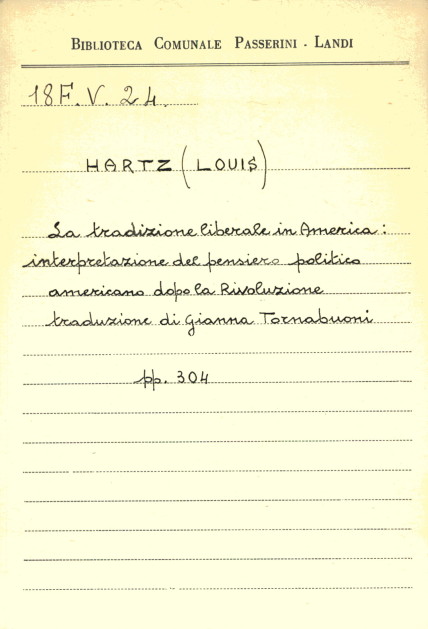 BIBLIOTECA COMUNALE PASSERINI - LANDI
18F. V. 24.
HARTZ (LOUIS)
La tradizione liberale in America:
interpretazione del pensiero politico
americano dopo la Rivoluzione
traduzione di Gianna Tornabuoni
pp. 304